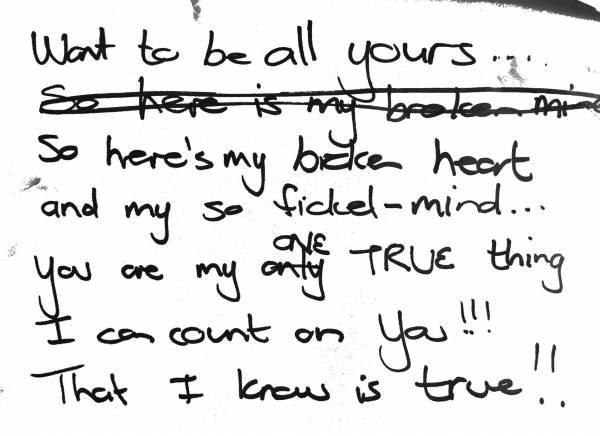 Want to be all yours....
So here is my broken min
So here's my broken heart
and my so fickel-mind...
You are my only ONE TRUE thing
I can count on You!!!
That I know is true!!